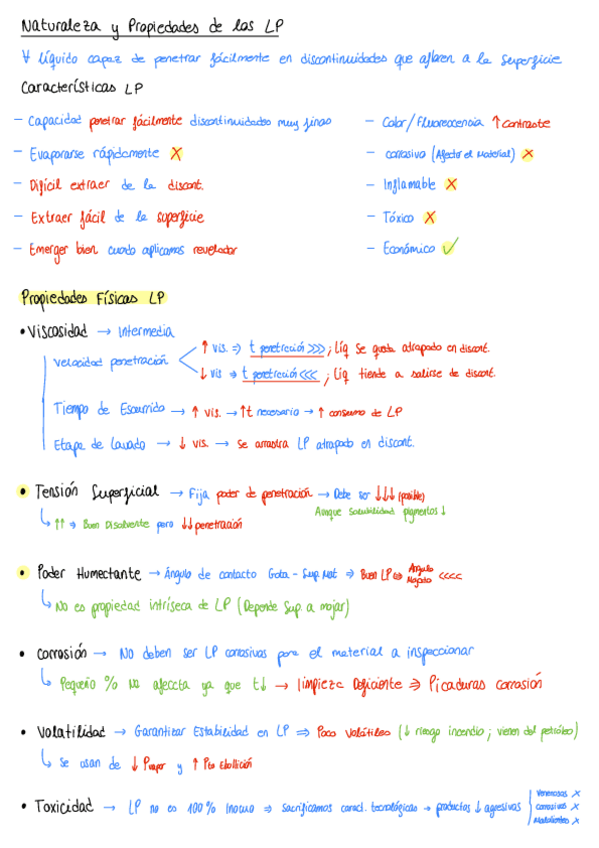 Naturaleza y Propiedades de los LP
∀ líquido capaz de penetrar fácilmente en discontinuidades que afloren a la superficie
Características LP
- Capacidad penetrar fácilmente discontinuidades muy finas
- Evaporarse rápidamente X
- Difícil extraer de la discont.
- Extraer fácil de la superficie
- Emerger bien cuando aplicamos revelador
- Color/Fluorescencia ↑ contraste
- corrosivo (Afectar el Material) X
- Inflamable X
- Tóxico X
- Económico ✓
Propiedades Físicas LP
• Viscosidad → Intermedia
Velocidad penetración
↑ vis. ⇒ t penetración >>> ; Líq se queda atrapado en discont.
↓ vis ⇒ t penetración <<< ; Líq tiende a salirse de discont.
Tiempo de Escurrido → ↑ vis. → ↑t necesario → ↑ consumo de LP
Etapa de lavado → ↓ vis. → se arrastra LP atrapado en discont.
• Tensión Superficial → Fija poder de penetración → Debe ser ↓↓↓ (posible)
Aunque solubilidad pigmentos ↓
↳ ↑↑ ⇒ Buen Disolvente pero ↓↓ penetración
• Poder Humectante → Ángulo de contacto Gota - Sup. Mat ⇒ Buen LP ⇔ Ángulo Mojado <<<<
↳ No es propiedad intríseca de LP (Depende Sup. a mojar)
• Corrosión → No deben ser LP corrosivos para el material a inspeccionar
↳ Pequeño % No afeccta ya que t↓ → limpieza Deficiente ⇒ Picaduras corrosión
• Volatilidad → Garantizar Estabilidad en LP ⇒ Poco Volátiles (↓ riesgo incendio ; vienen del petróleo)
↳ Se usan de ↓ Pvapor y ↑ Pto Ebullición
• Toxicidad → LP no es 100% Inocuo ⇒ sacrificamos caract. tecnológicas → productos ↓ agresivos
Venenosos X
corrosivos X
Malolientes X